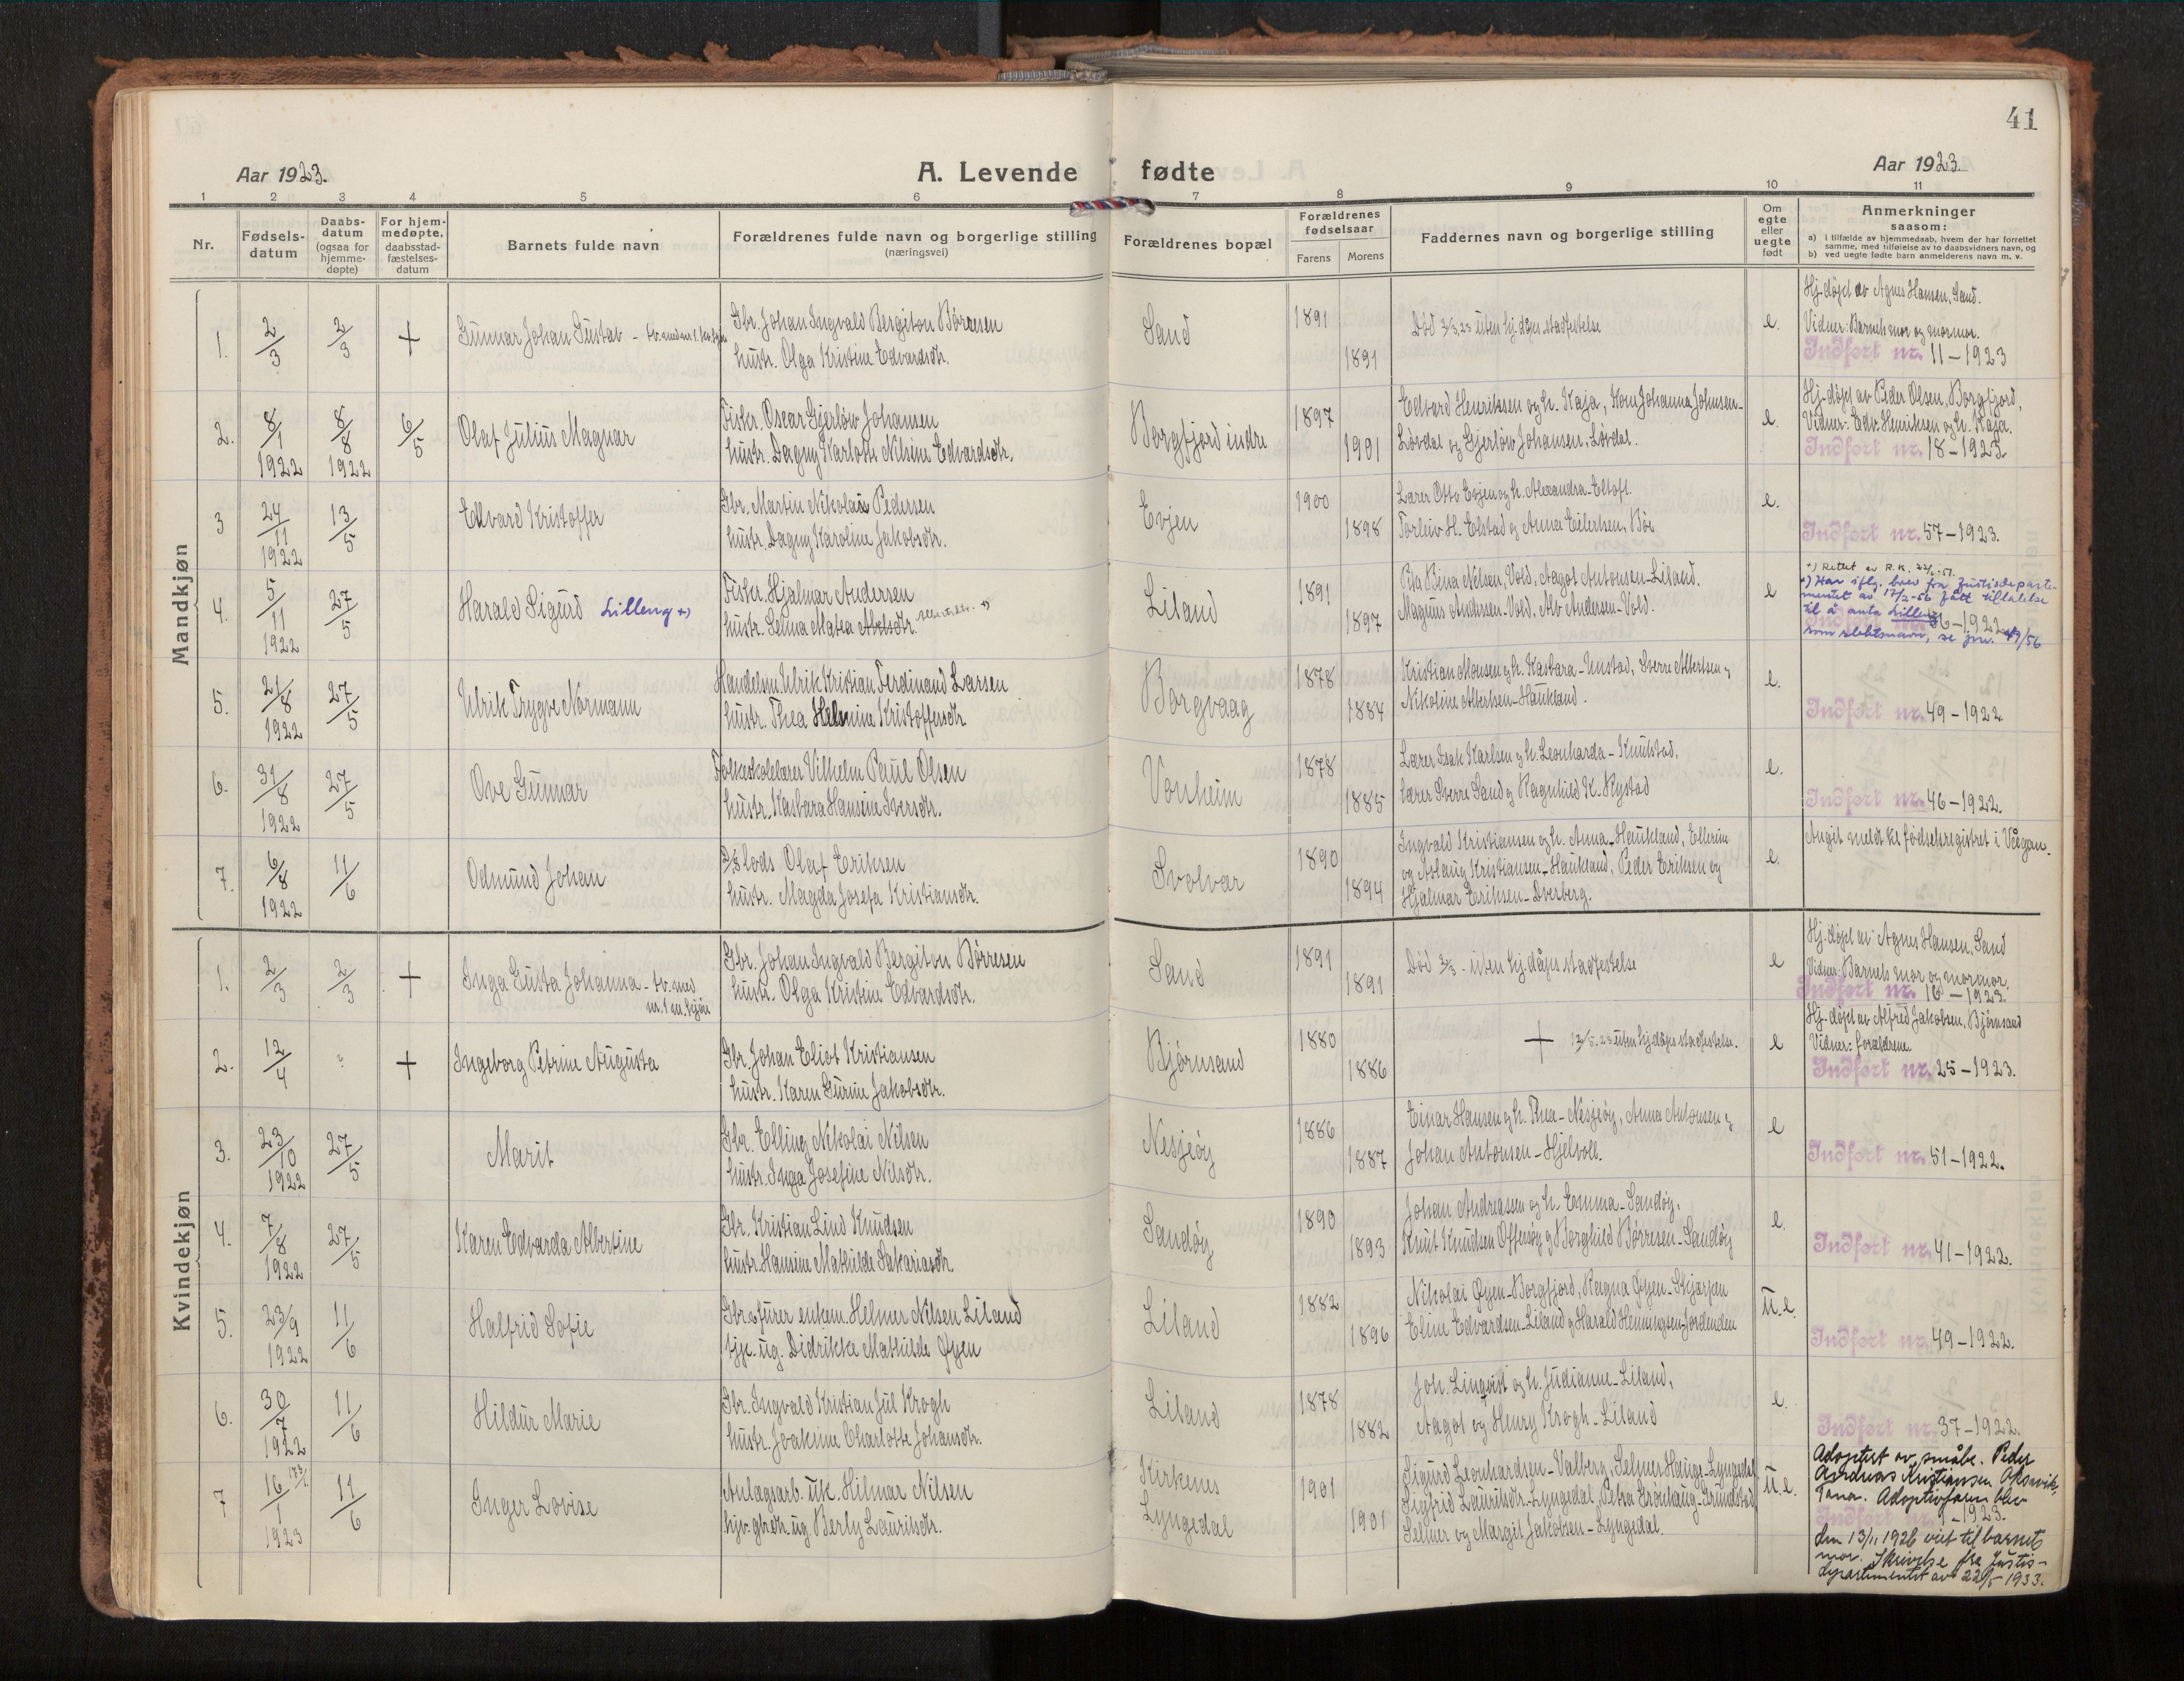 41
Aar 1923.
A. Levende fødte
Aar 1923.
1 2 3 4 5 6 7 8 9 10 11
Nr.
Fødsels-
datum
Daabs-
datum
(ogsaa for
hjemme-
døpte)
For hjem-
medøpte,
daabsstad-
fæstelses-
datum
Barnets fulde navn
Forældrenes fulde navn og borgerlige stilling
(næringsvei)
Forældrenes bopæl
Forældrenes
fødselsaar
Farens
Morens
Faddernes navn og borgerlige stilling
Om
egte
eller
uegte
født
Anmerkninger
saasom:
a) i tilfælde av hjemmedaab, hvem der har forrettet
samme, med tilføielse av to daabsvidners navn, og
b) ved uegte fødte barn anmelderens navn m. v.
Mandkjøn
1.
2/3
2/3
+
Gunnar Johan Gustav - tv. med nr. 1
Gbr. Johan Ingvald Bergiton Børresen
hustr. Olga Kristine Edvardsdtr.
Sand
1891
1891
Død 3/3.23 uten hj.dåps stadfestelse
e.
Hj.døpt av Agnes Hansen, Sand.
Vidner: Barnets mor og mormor.
Indført nr. 11-1923
2.
8/1
1922
8/8
1922
6/5
Olaf Julius Magnar
Fisker Oscar Gjerløw Johansen
hustr. Dagny Karlotte Nilsine Edvardsdtr.
Borgfjord indre
1897
1901
Edvard Henriksen og h. Kaja, Johanna Johnsen-
Løvdal og Gjerløw Johansen, Løvdal.
e.
Hj.døpt av Peder Olsen, Borgfjord,
Vidner: Edv. Henriksen og h. Kaja.
Indført nr. 18-1923.
3
24/11
1922
13/5
Edvard Kristoffer
Gbr. Martin Nikolai Pedersen
hustr. Dagny Karoline Jakobsdtr.
Evjen
1900
1898
Lærer Otto Evjen og h. Alexandra-Eltoft.
Torleiv H. Elstad og Anna Eilertsen, Bø
e.
Indført nr. 57-1923.
4.
5/11
1922
27/5
Harald Sigurd Lilleng +)
Fisker Hjalmar Andersen
hustr. Selma Matea Abelsdtr.
Liland
1891
1897
Rita Rena Nilsen, Vold, Aagot Antonsen-Liland.
Magnus Andersen-Vold, Alv Andersen-Vold.
e
+) Rettet av R.K.
+) Har iflg. brev fra Justisdeparte-
mentet av 17/2-56 fått tillatelse
til å anta Lilleng
Indført nr. 66-1922
som slektsnavn, se jnr. 49/56
5.
21/8
1922
27/5
Ulrik Trygve Normann
Handelsm. Ulrik Kristian Ferdinand Larsen
hustr. Thea Helmine Kristoffersdtr.
Borgvaag
1878
1884
Kristian Monsen og h. Kasbara-Unstad, Sverre Albertsen og
Nikoline Albertsen-Haukland.
e.
Indført nr. 49-1922.
6.
31/8
1922
27/5
Ove Gunnar
Folkeskolelærer Vilhelm Paul Olsen
hustr. Kasbara Hansine Iversdtr.
Vonheim
1878
1885
Lærer Isak Karlsen og h. Leonharda-Knutstad,
lærer Sverre Sand og Ragnhild K. Rystad
e.
Indført nr. 46-1922.
7.
6/8
1922
11/6
Odmund Johan
D/S lods Olaf Eriksen
hustr. Magda Josefa Kristiansdtr.
Svolvær
1890
1894
Ingvald Kristiansen og h. Anna-Haukland, Ellerine
og Aslaug Kristiansen-Haukland, Peder Eriksen og
Hjalmar Eriksen-Dverberg.
e.
Angit meldt til fødselsregistret i Vågan.
Kvindekjøn
1.
2/3
2/3
+
Inga Gusta Johanna - tv. med
nr. 1 m.kjøn
Gbr. Johan Ingvald Bergiton Børresen
hustr. Olga Kristine Edvardsdtr.
Sand
1891
1891
Død 3/3 - uten hj.dåps stadfestelse
e
Hj.døpt av Agnes Hansen, Sand
Vidner: Barnets mor og mormor.
Indført nr. 16-1923.
2.
12/4
?
+
Ingeborg Petrine Augusta
Gbr. Johan Eliot Kristiansen
hustr. Karen Gurine Jakobsdtr.
Bjørnsand
1880
1886
+ 13/5.23 uten hj.dåps stadfestelse.
e
Hj.døpt av Alfred Jakobsen, Bjørnsand
Vidner: foreldrene.
Indført nr. 25-1923.
3.
23/10
1922
27/5
Marit
Gbr. Elling Nikolai Nilsen
hustr. Inga Josefine Nilsdtr.
Nesjeøy
1886
1887
Einar Hansen og h. Thea-Nesjeøy, Anna Antonsen og
Johan Antonsen-Hjelvoll.
e
Indført nr. 51-1922.
4.
7/8
1922
27/5
Karen Edvarda Albertine
Gbr. Kristian Lind Knudsen
hustr. Hansine Mathilde Sakariasdtr.
Sandøy
1890
1893
Johan Andreassen og h. Emma-Sandøy,
Knut Knudsen Offersøy og Borghild Børresen-Sandøy
e.
Indført nr. 41-1922.
5.
23/9
1922
11/6
Halfrid Sofie
Gbr. furer enkem. Helmer Nilsen Liland
tjp. ug. Didrikke Mathilde Øyen
Liland
1882
1896
Nikolai Øyen-Borgfjord, Ragna Øyen-Skjærpen
Eline Edvardsen-Liland og Harald Henningsen-Jordenden
u.e.
Indført nr. 49-1922.
6.
30/7
1922
11/6
Hildur Marie
Gbr. Ingvald Kristian Jul Krogh
hustr. Joakine Charlotte Johansdtr.
Liland
1878
1882
Joh. Linqvist og h. Judianne-Liland,
Aagot og Henry Krogh-Liland
e.
Indført nr. 37-1922.
7
16/1
1923
11/6
Inger Lovise
Anlagsarb. uk. Hilmar Nilsen
hjv. gbrdtr. ug. Berly Lauritsdtr.
Kirkenes
Lyngedal
1901
1901
Sigurd Leonhardsen-Valberg, Selmer Hauge-Lyngedal
Sigfrid Lauritsdtr.-Lyngedal, Petra Grønhaug-Grundstad
Selmer og Margit Jakobsen-Lyngedal.
u.e.
Adoptert av småbr. Peder
Andreas Kristiansen Aksnvik,
Tana. Adoptivfaren blev
Indført nr. 9-1923.
den 13/11 1926 viet til barnets
mor. Skrivelse fra Justis-
departementet av 22/5-1933.